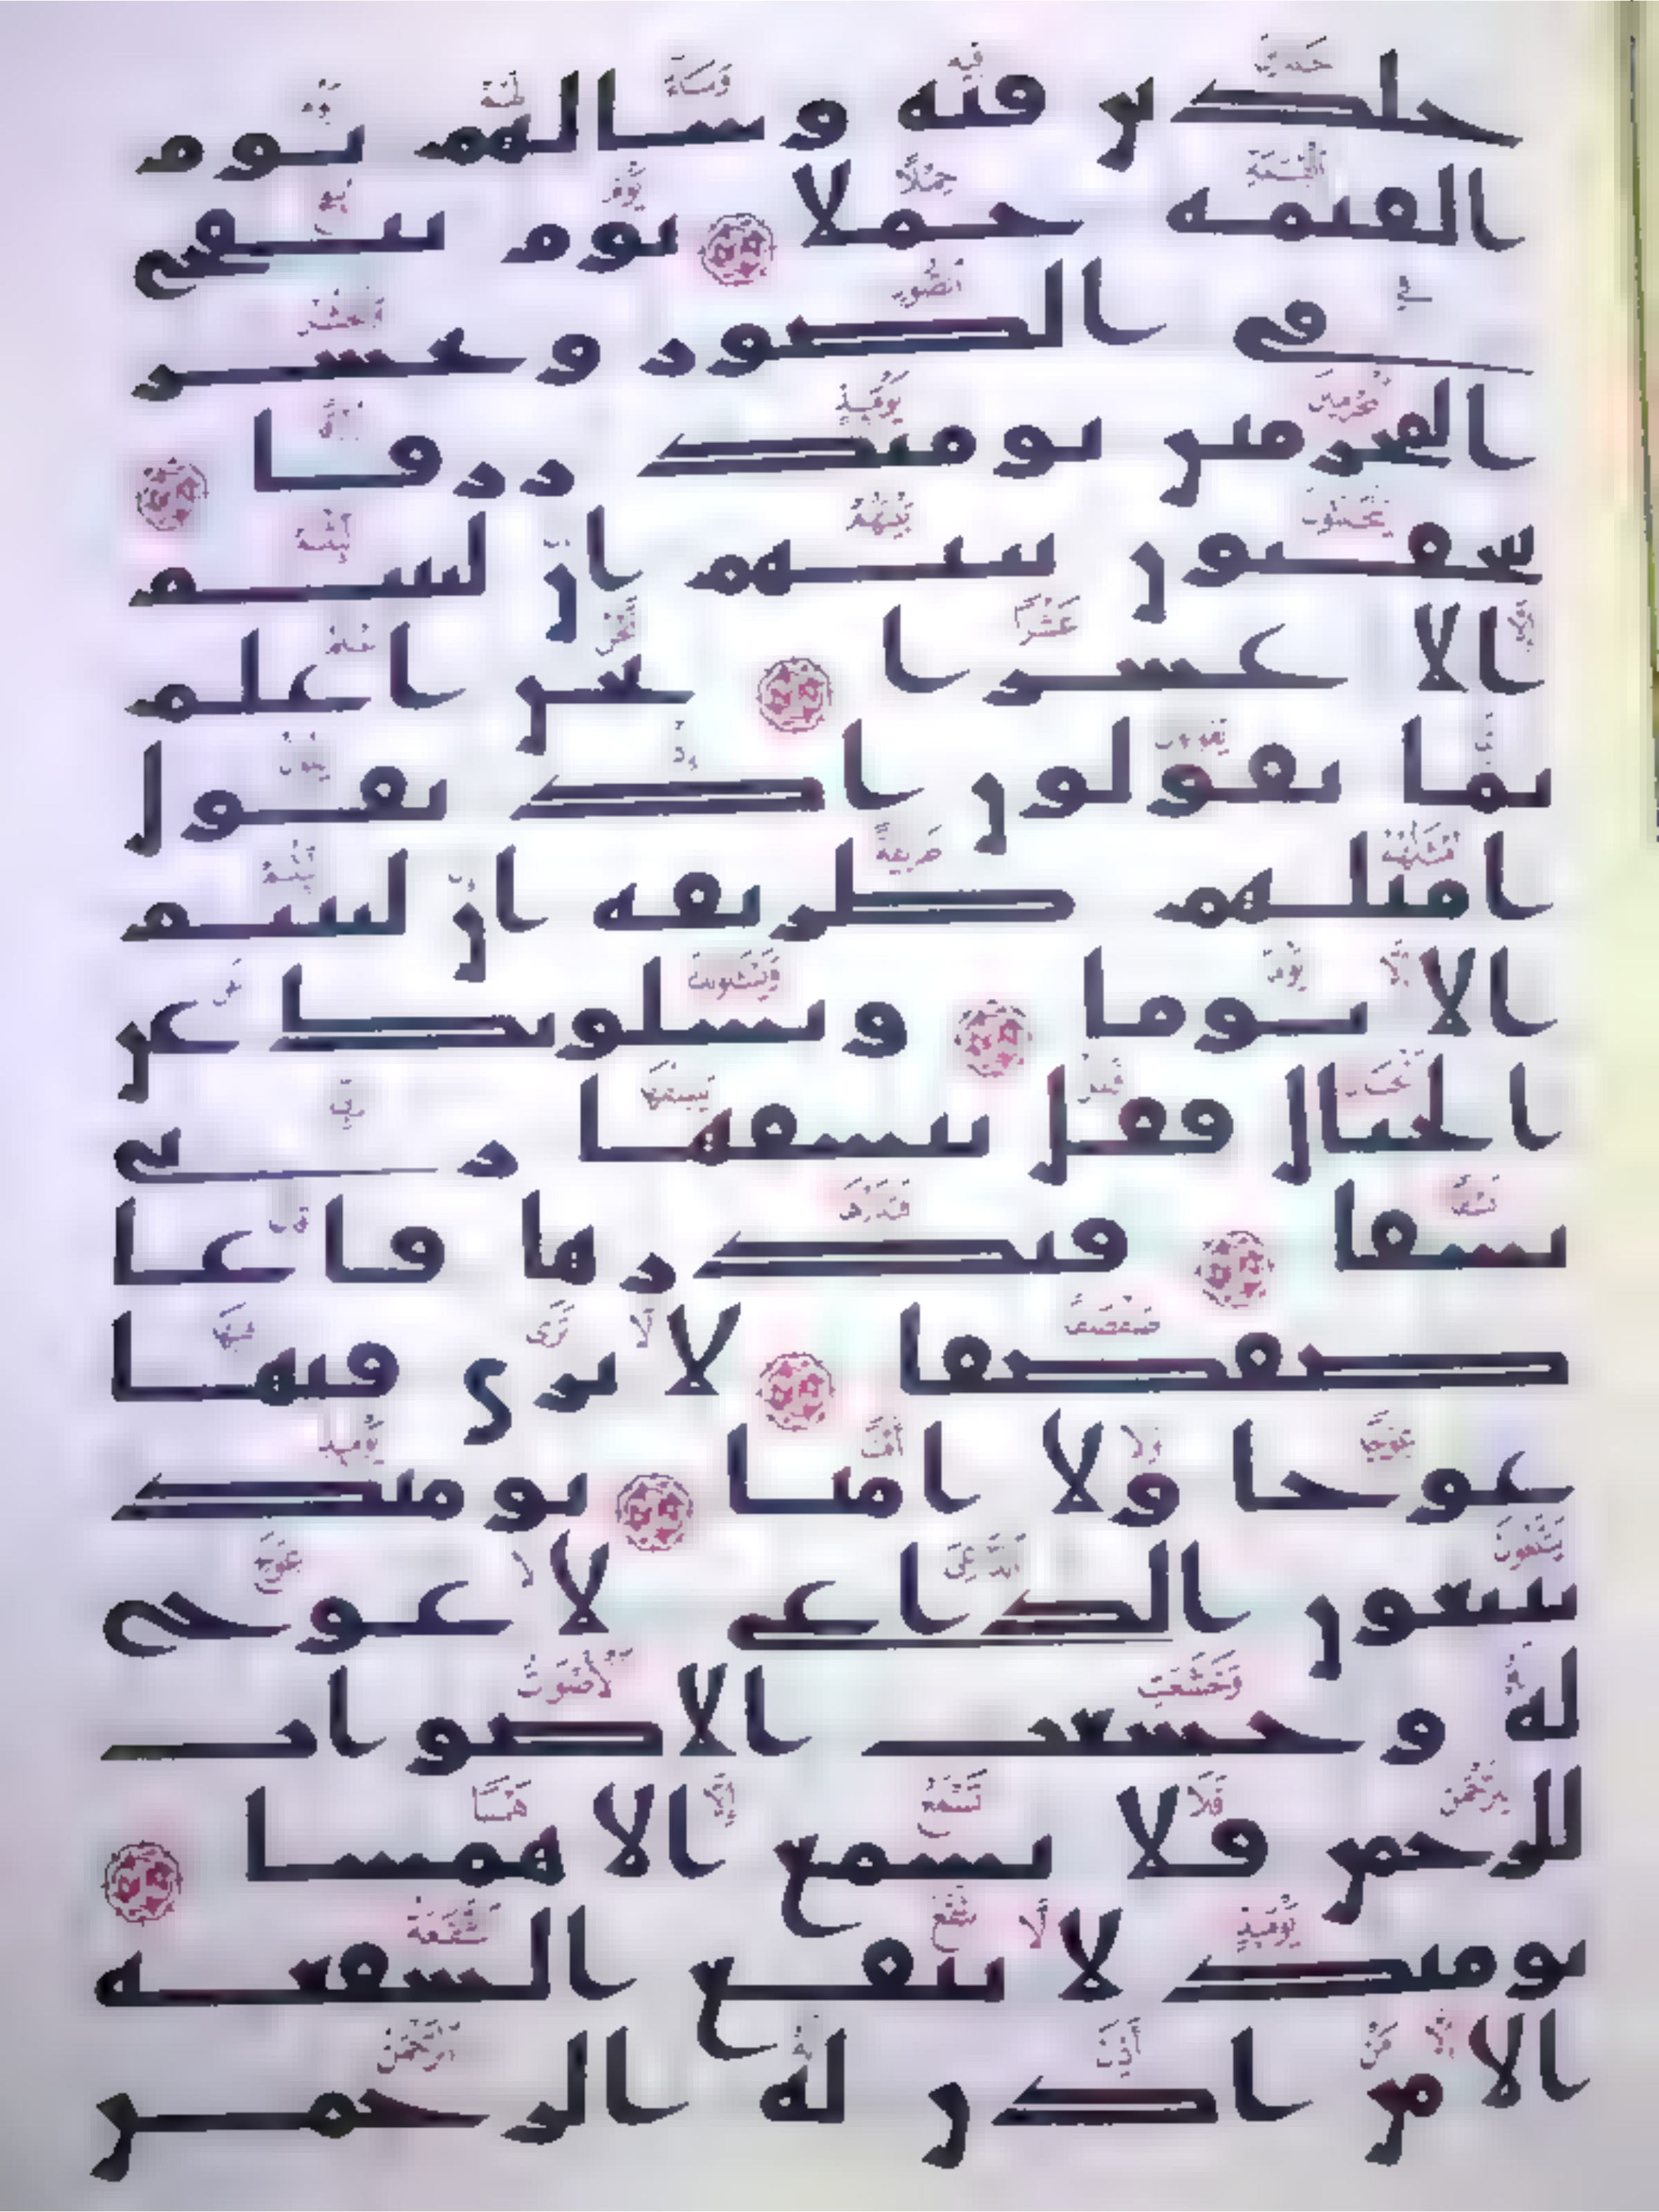 خلدين فيه وسا لهم يوم
القيمة حملا يوم ينفخ
في الصور ونحشر
المجرمين يومئذ زرقا
يتخفتون بينهم ان لبثتم
الا عشرا نحن اعلم
بما يقولون اذ يقول
امثلهم طريقة ان لبثتم
الا يوما ويسلونك عن
الجبال فقل ينسفها ربي
نسفا فيذرها قاعا
صفصفا لا ترى فيها
عوجا ولا امتا يومئذ
يتبعون الداعي لا عوج
له وخشعت الاصوات
للرحمن فلا تسمع الا همسا
يومئذ لا تنفع الشفعة
الا من اذن له الرحمن